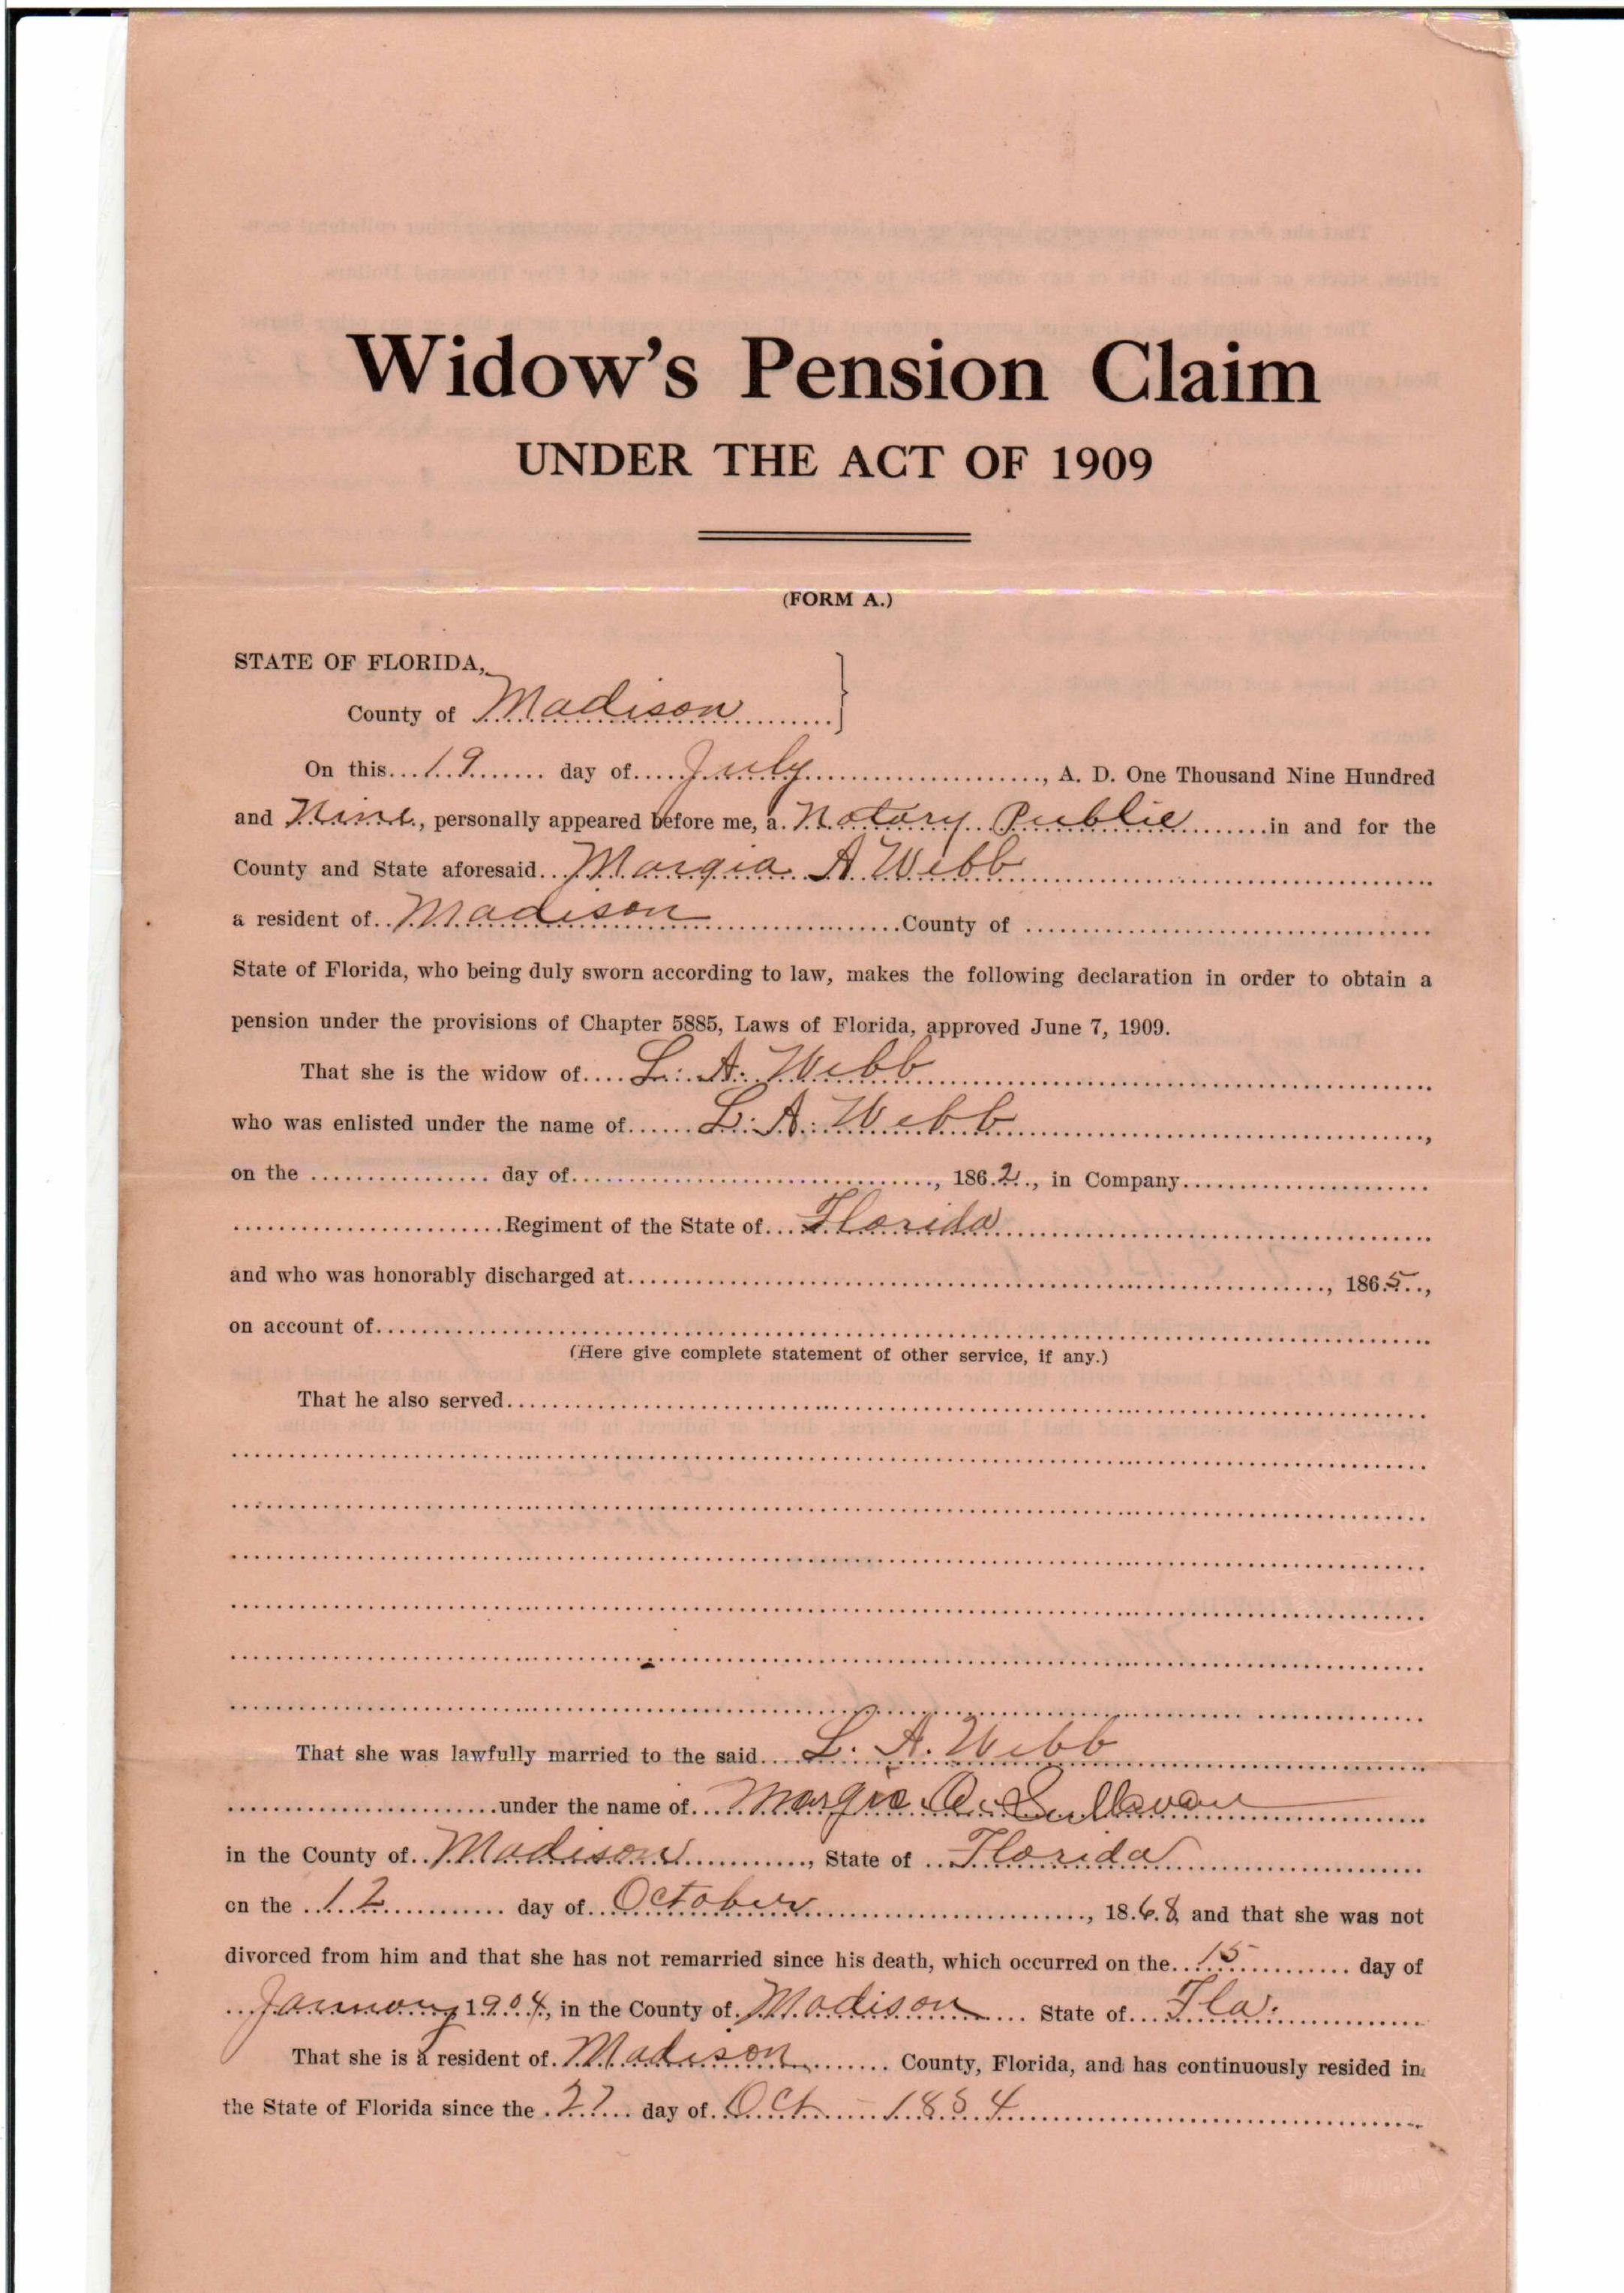 Widow's Pension Claim
UNDER THE ACT OF 1909
(FORM A.)
STATE OF FLORIDA,
County of Madison
On this 19 day of July, A. D. One Thousand Nine Hundred
and Nine, personally appeared before me, a Notary Public in and for the
County and State aforesaid Margia A Webb
a resident of Madison County of
State of Florida, who being duly sworn according to law, makes the following declaration in order to obtain a
pension under the provisions of Chapter 5885, Laws of Florida, approved June 7, 1909.
That she is the widow of L. A. Webb
who was enlisted under the name of L. A. Webb,
on the day of, 1862, in Company
Regiment of the State of Florida
and who was honorably discharged at, 1865,
on account of
(Here give complete statement of other service, if any.)
That he also served
That she was lawfully married to the said L. A. Webb
under the name of Margie A. Sullavan
in the County of Madison, State of Florida
on the 12 day of October, 1868, and that she was not
divorced from him and that she has not remarried since his death, which occurred on the 15 day of
January 1904, in the County of Madison State of Fla.
That she is a resident of Madison County, Florida, and has continuously resided in
the State of Florida since the 27 day of Oct 1854